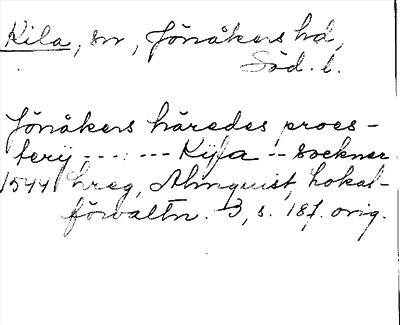 Kila, sn, Jönåkers hd,
Söd. l.
Jönåkers häredes proes-
terij ---- --- Kijla -- sockner
1544 hreg, Almquist, Lokal-
förvaltn. 3, s. 187. orig.